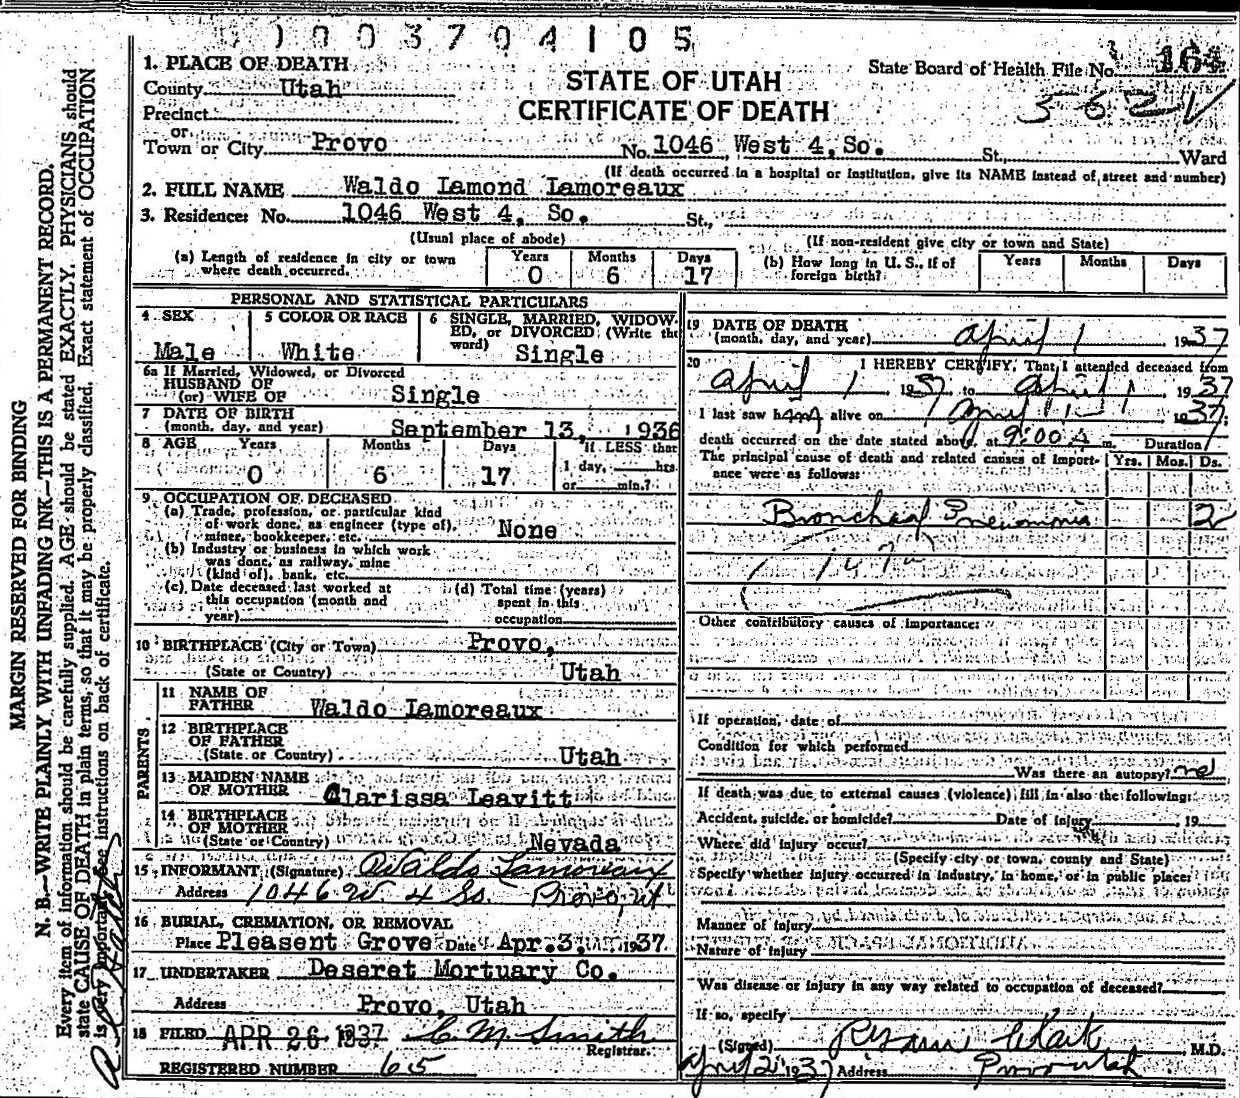 0100370410 5
1. PLACE OF DEATH
County Utah
Precinct
or
Town or City Provo
STATE OF UTAH
CERTIFICATE OF DEATH
State Board of Health File No. 164
562 V
No. 1046 West 4, So. St., Ward
(If death occurred in a hospital or institution, give its NAME instead of street and number)
2. FULL NAME Waldo Lamond Lamoreaux
3. Residence: No. 1046 West 4, So. St.,
(Usual place of abode) (If non-resident give city or town and State)
(a) Length of residence in city or town where death occurred. Years 0 Months 6 Days 17
(b) How long in U. S., if of foreign birth? Years Months Days
PERSONAL AND STATISTICAL PARTICULARS
4 SEX Male
5 COLOR OR RACE White
6 SINGLE, MARRIED, WIDOWED, or DIVORCED (Write the word) Single
6a If Married, Widowed, or Divorced
HUSBAND OF
(or) WIFE OF Single
7 DATE OF BIRTH
(month, day, and year) September 13, 1936
8 AGE Years 0 Months 6 Days 17 If LESS than 1 day, hrs. or min.?
9 OCCUPATION OF DECEASED
(a) Trade, profession, or particular kind of work done, as engineer (type of), miner, bookkeeper, etc. None
(b) Industry or business in which work was done, as railway, mine (kind of), bank, etc.
(c) Date deceased last worked at this occupation (month and year)
(d) Total time (years) spent in this occupation
10 BIRTHPLACE (City or Town) Provo,
(State or Country) Utah
PARENTS
11 NAME OF FATHER Waldo Lamoreaux
12 BIRTHPLACE OF FATHER
(State or Country) Utah
13 MAIDEN NAME OF MOTHER Clarissa Leavitt
14 BIRTHPLACE OF MOTHER
(State or Country) Nevada
15 INFORMANT (Signature) Waldo Lamoreaux
Address 1046 W. 4 So. Provo, Ut
16 BURIAL, CREMATION, OR REMOVAL
Place Pleasent Grove Date Apr. 3, 1937
17 UNDERTAKER Deseret Mortuary Co.
Address Provo, Utah
18 FILED APR 26 1937 C. M. Smith
Registrar.
REGISTERED NUMBER 65
19 DATE OF DEATH
(month, day, and year) April 1 1937
20 I HEREBY CERTIFY, That I attended deceased from
April 1 1937 to April 1 1937
I last saw him alive on April 1 1937
death occurred on the date stated above, at 9:00 A m. Duration
The principal cause of death and related causes of importance were as follows: Yrs. Mos. Ds.
Bronchial Pneumonia 2
107a
Other contributory causes of importance:
If operation, date of
Condition for which performed
Was there an autopsy? no
If death was due to external causes (violence) fill in also the following:
Accident, suicide, or homicide? Date of injury , 19
Where did injury occur?
(Specify city or town, county and State)
Specify whether injury occurred in industry, in home, or in public place:
Manner of injury
Nature of injury
Was disease or injury in any way related to occupation of deceased?
If so, specify
(Signed) Clark M.D.
April 2 1937 Address Provo Utah
MARGIN RESERVED FOR BINDING
N. B.—WRITE PLAINLY WITH UNFADING INK—THIS IS A PERMANENT RECORD.
Every item of information should be carefully supplied. AGE should be stated EXACTLY. PHYSICIANS should
state CAUSE OF DEATH in plain terms, so that it may be properly classified. Exact statement of OCCUPATION
is very important. See instructions on back of certificate.